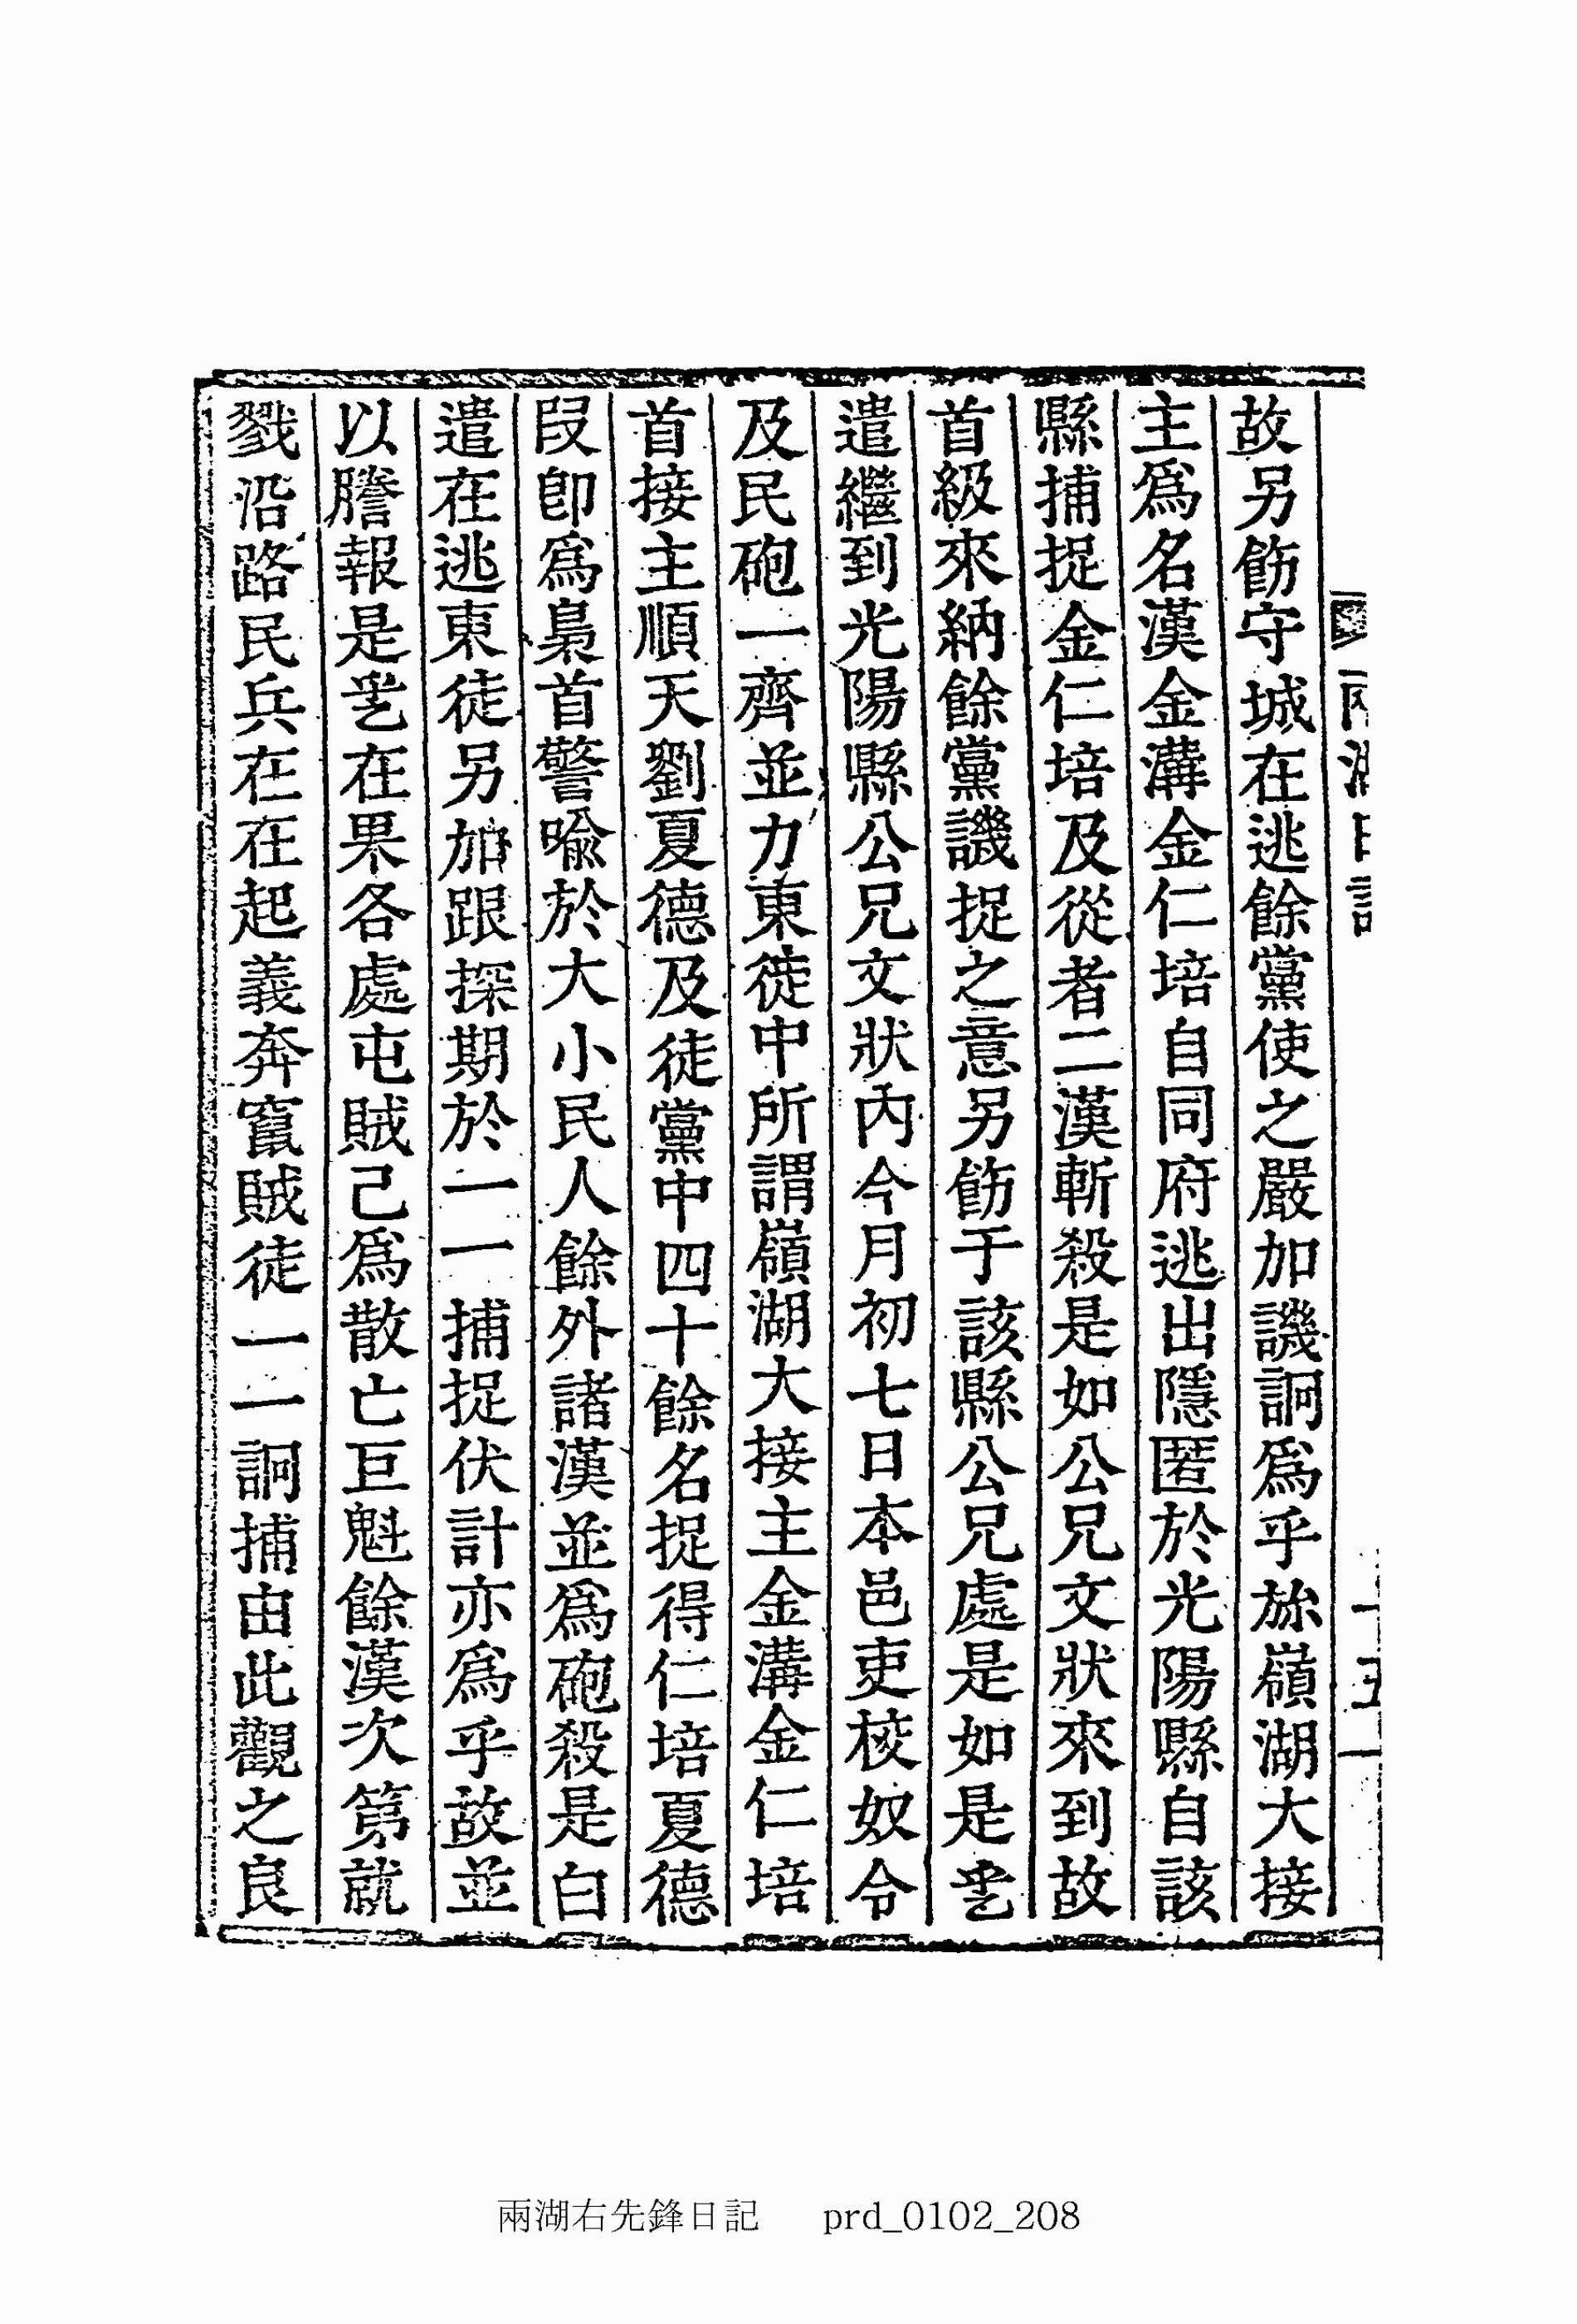 故另飭守城在逃餘黨使之嚴加譏詗爲乎旀嶺湖大接
主爲名漢金溝金仁培自同府逃出隱匿於光陽縣自該
縣捕捉金仁培及從者二漢斬殺是如公兄文狀來到故
首級來納餘黨譏捉之意另飭于該縣公兄處是如是乯
遣繼到光陽縣公兄文狀內今月初七日本邑吏校奴令
及民砲一齊並力東徒中所謂嶺湖大接主金溝金仁培
首接主順天劉夏德及徒黨中四十餘名捉得仁培夏德
段卽爲梟首警喩於大小民人餘外諸漢並爲砲殺是白
遣在逃東徒另加跟探期於一一捕捉伏計亦爲乎故並
以謄報是乯在果各處屯賊已爲散亡巨魁餘漢次第就
戮沿路民兵在在起義奔竄賊徒一一詗捕由此觀之良
兩湖右先鋒日記 prd_0102_208